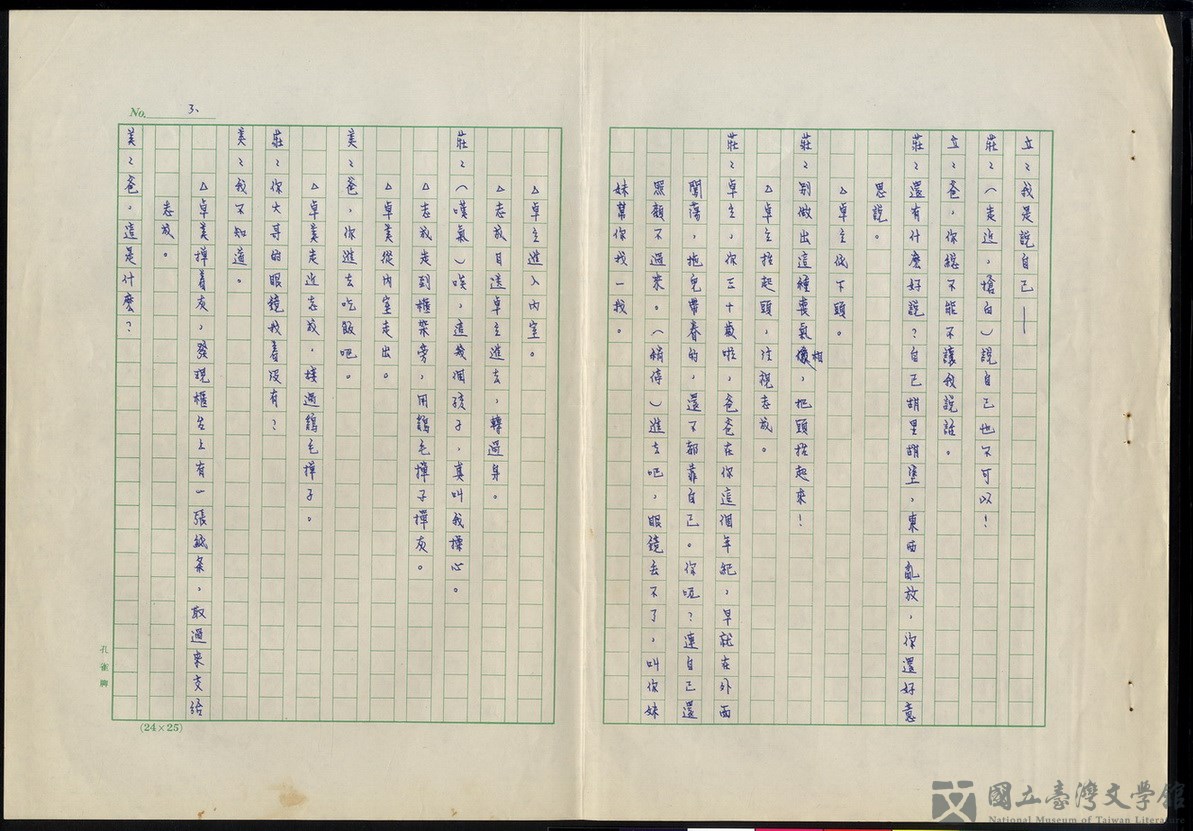 立：我是說自己——
莊：（走近，搶白）說自己也不可以！
立：爸，你總不能不讓我說話。
莊：還有什麼好說？自己胡里胡塗，東西亂放，你還好意
思說。
△卓立低下頭。
莊：別做出這種喪氣相，把頭抬起來！
△卓立抬起頭，注視志成。
莊：卓立，你三十歲啦，爸爸在你這個年紀，早就在外面
闖蕩，拖兒帶眷的，還不都靠自己。你呢？連自己還
照顧不過來。（稍停）進去吧，眼鏡丟不了，叫你妹
妹幫你找一找。
No. 3、
△卓立進入內室。
△志成目送卓立進去，轉過身。
莊：（嘆氣）唉，這幾個孩子，真叫我操心。
△志成走到櫃架旁，用鷄毛撣子撣灰。
△卓美從內室走出。
美：爸，你進去吃飯吧。
△卓美走近志成，接過鷄毛撣子。
莊：你大哥的眼鏡找着沒有？
美：我不知道。
△卓美撣着灰，發現櫃台上有一張紙条，取過來交給
志成。
美：爸，這是什麼？
孔雀牌
(24×25)
國立臺灣文學館
National Museum of Taiwan Literature